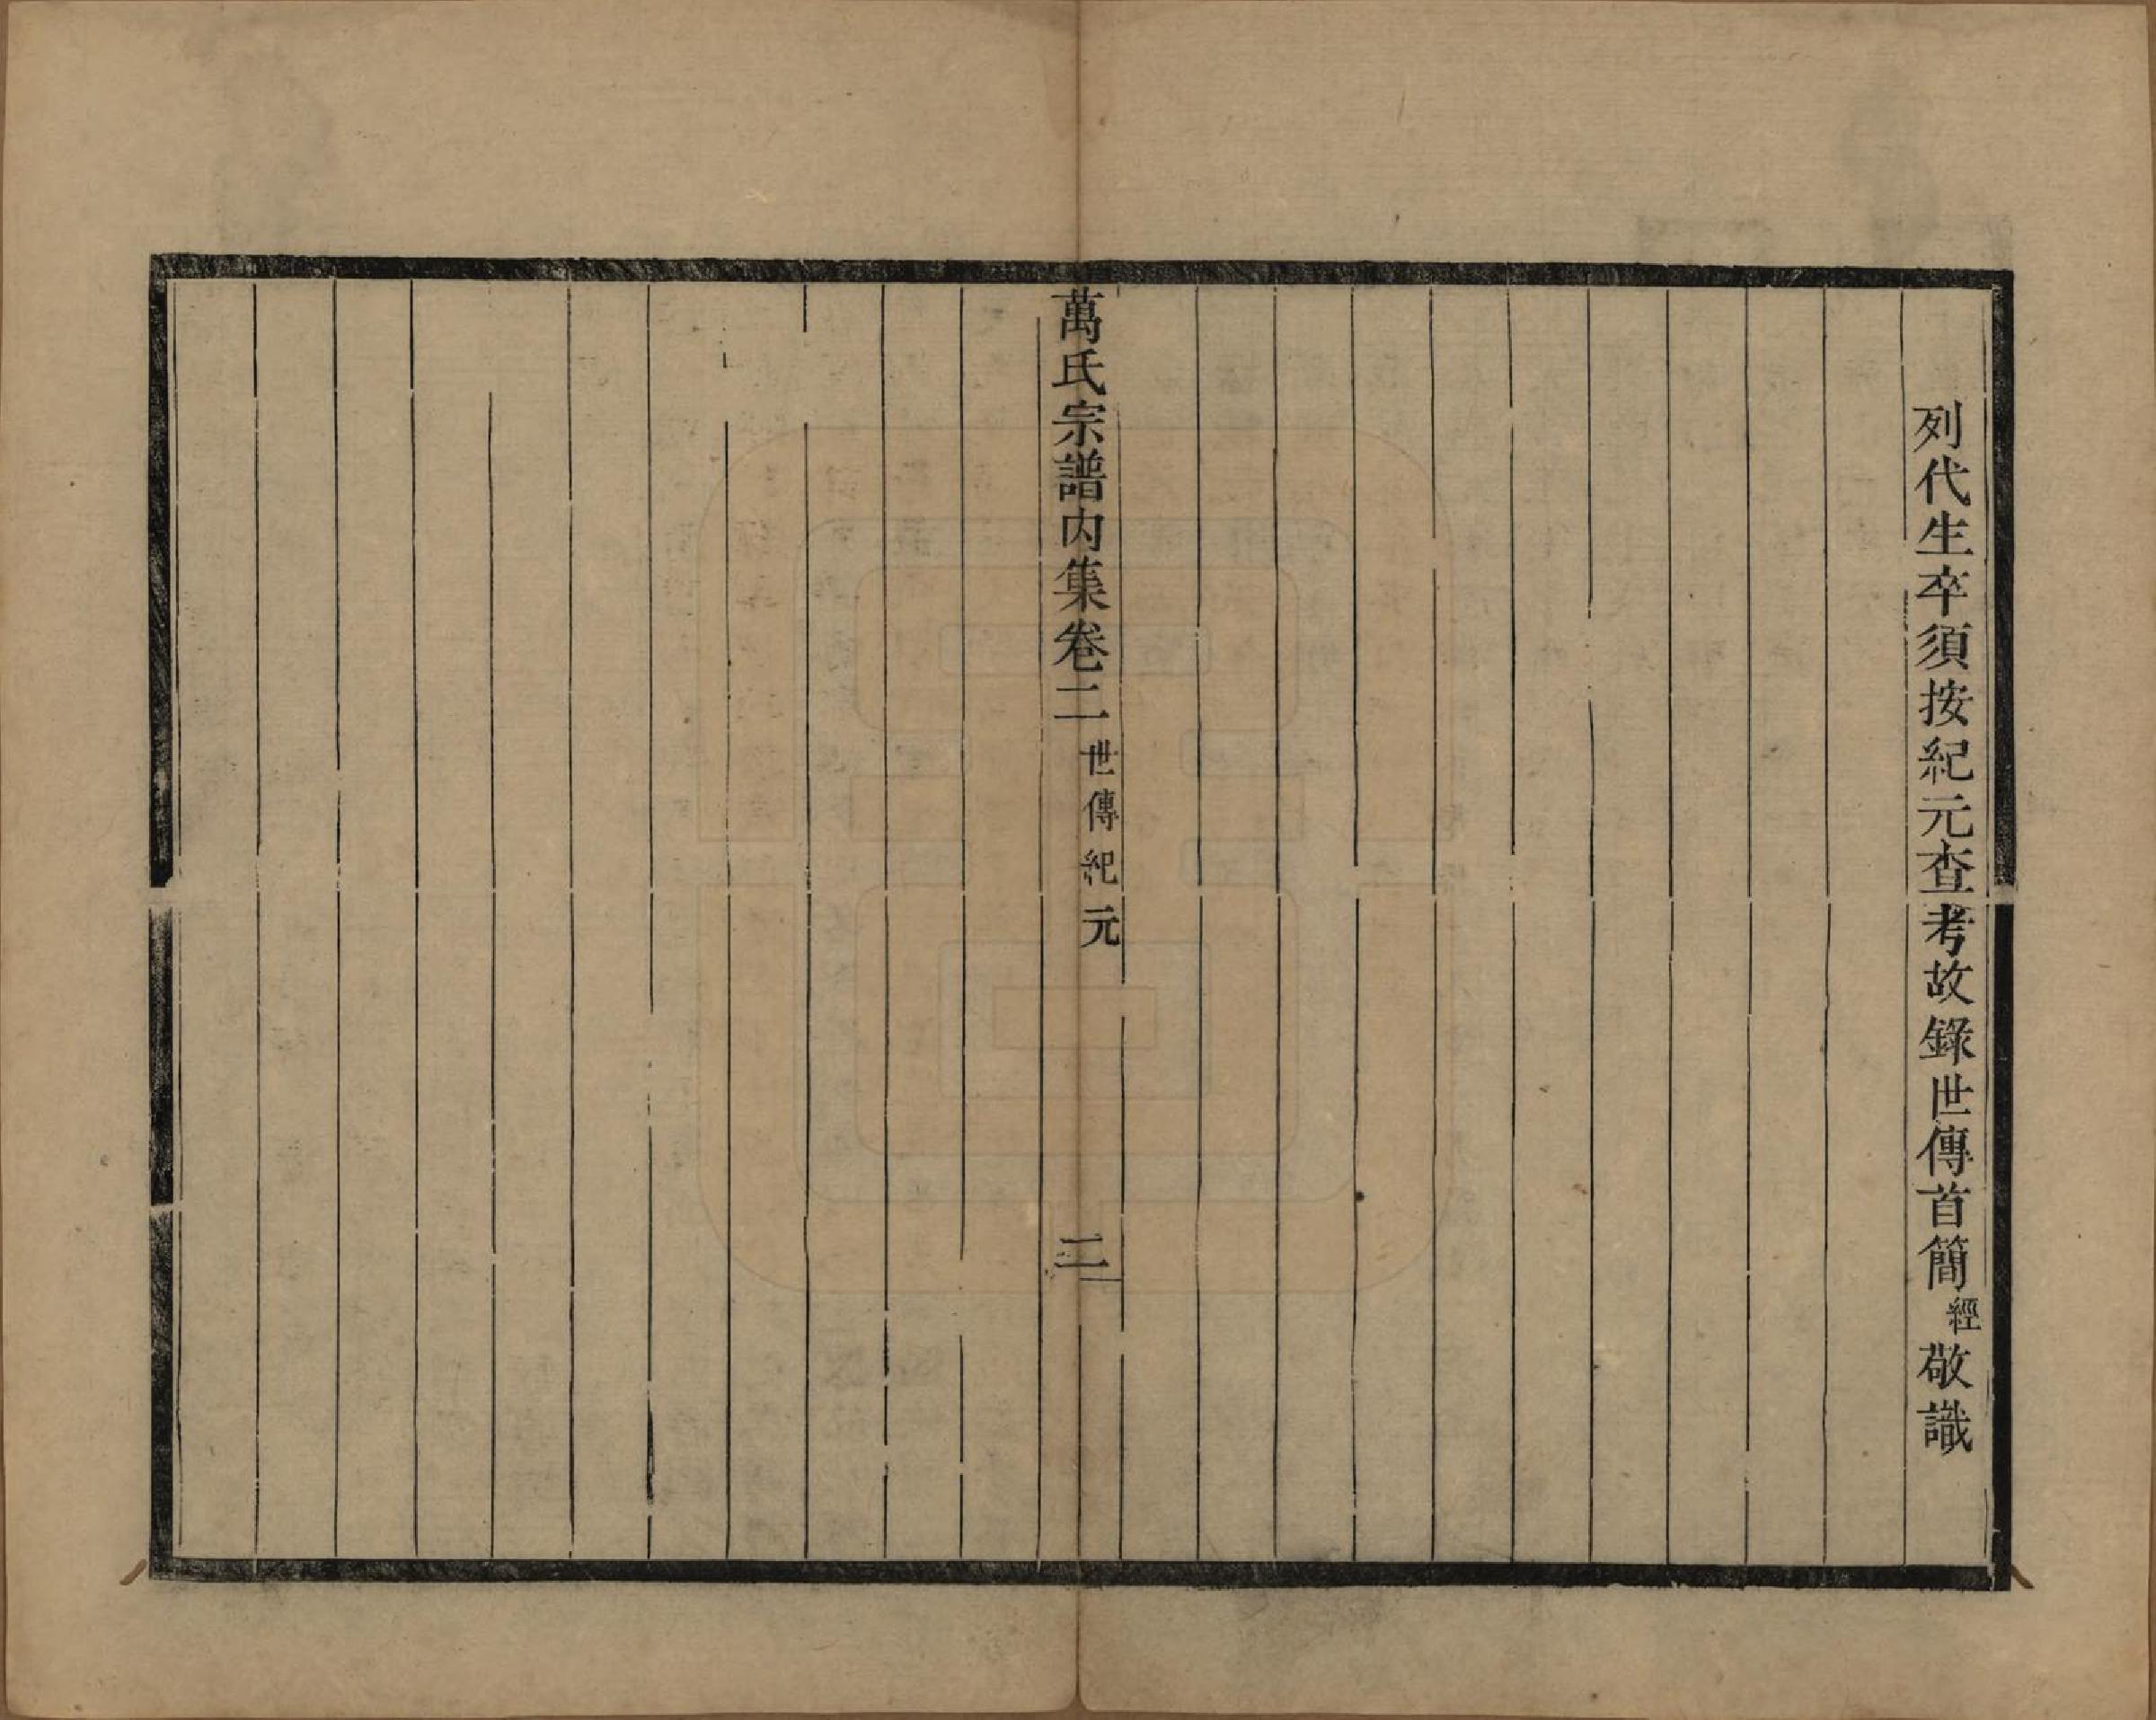 列代生卒須按紀元查考故錄世傳首簡經敬識
萬氏宗譜内集卷二 世傳紀元 二